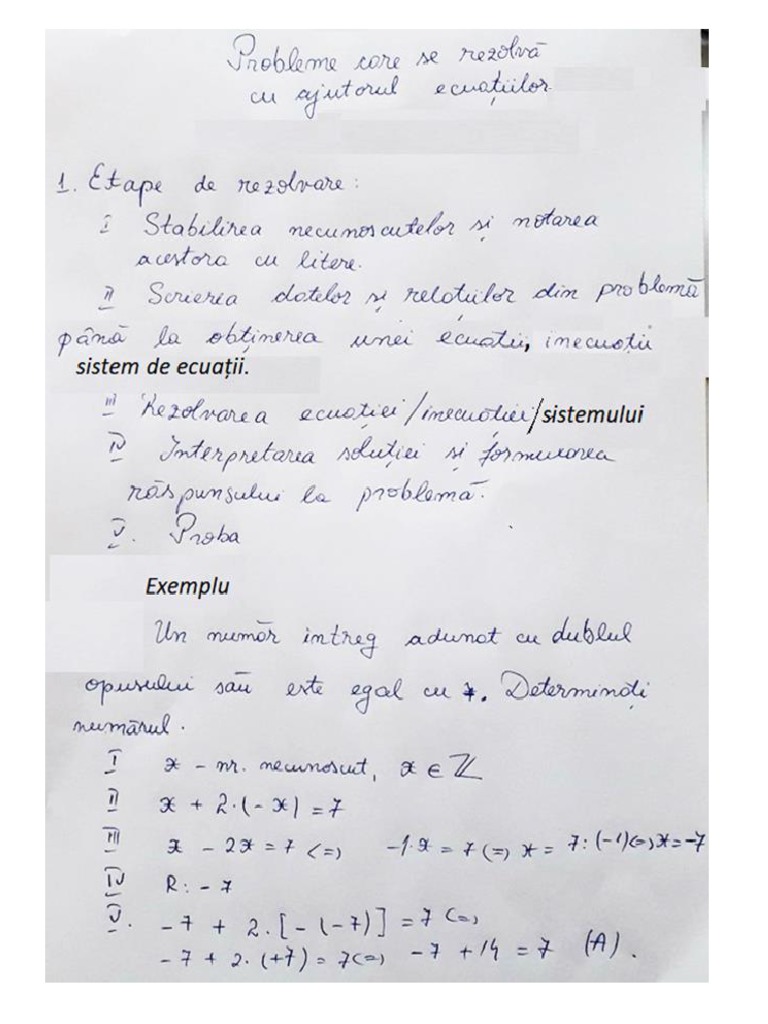 Probleme care se rezolvă
cu ajutorul ecuațiilor
1. Etape de rezolvare:
I Stabilirea necunoscutelor și notarea
acestora cu litere.
II Scrierea datelor și relațiilor din problemă
până la obținerea unei ecuații, inecuații
sistem de ecuații.
III Rezolvarea ecuației/inecuației/sistemului
IV Interpretarea soluției și formularea
răspunsului la problemă.
V. Proba
Exemplu
Un număr întreg adunat cu dublul
opusului său este egal cu 7. Determinați
numărul.
I x - nr. necunoscut, x ∈ ℤ
II x + 2·(-x) = 7
III x - 2x = 7 <=> -1·x = 7 (=) x = 7:(-1)(=) x = -7
IV R: -7
V. -7 + 2·[-(-7)] = 7 (=)
-7 + 2·(+7) = 7 (=) -7 + 14 = 7 (A).